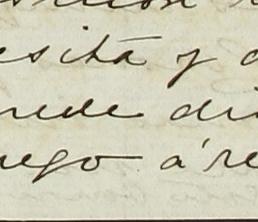 esita y d
uede di
uego á re